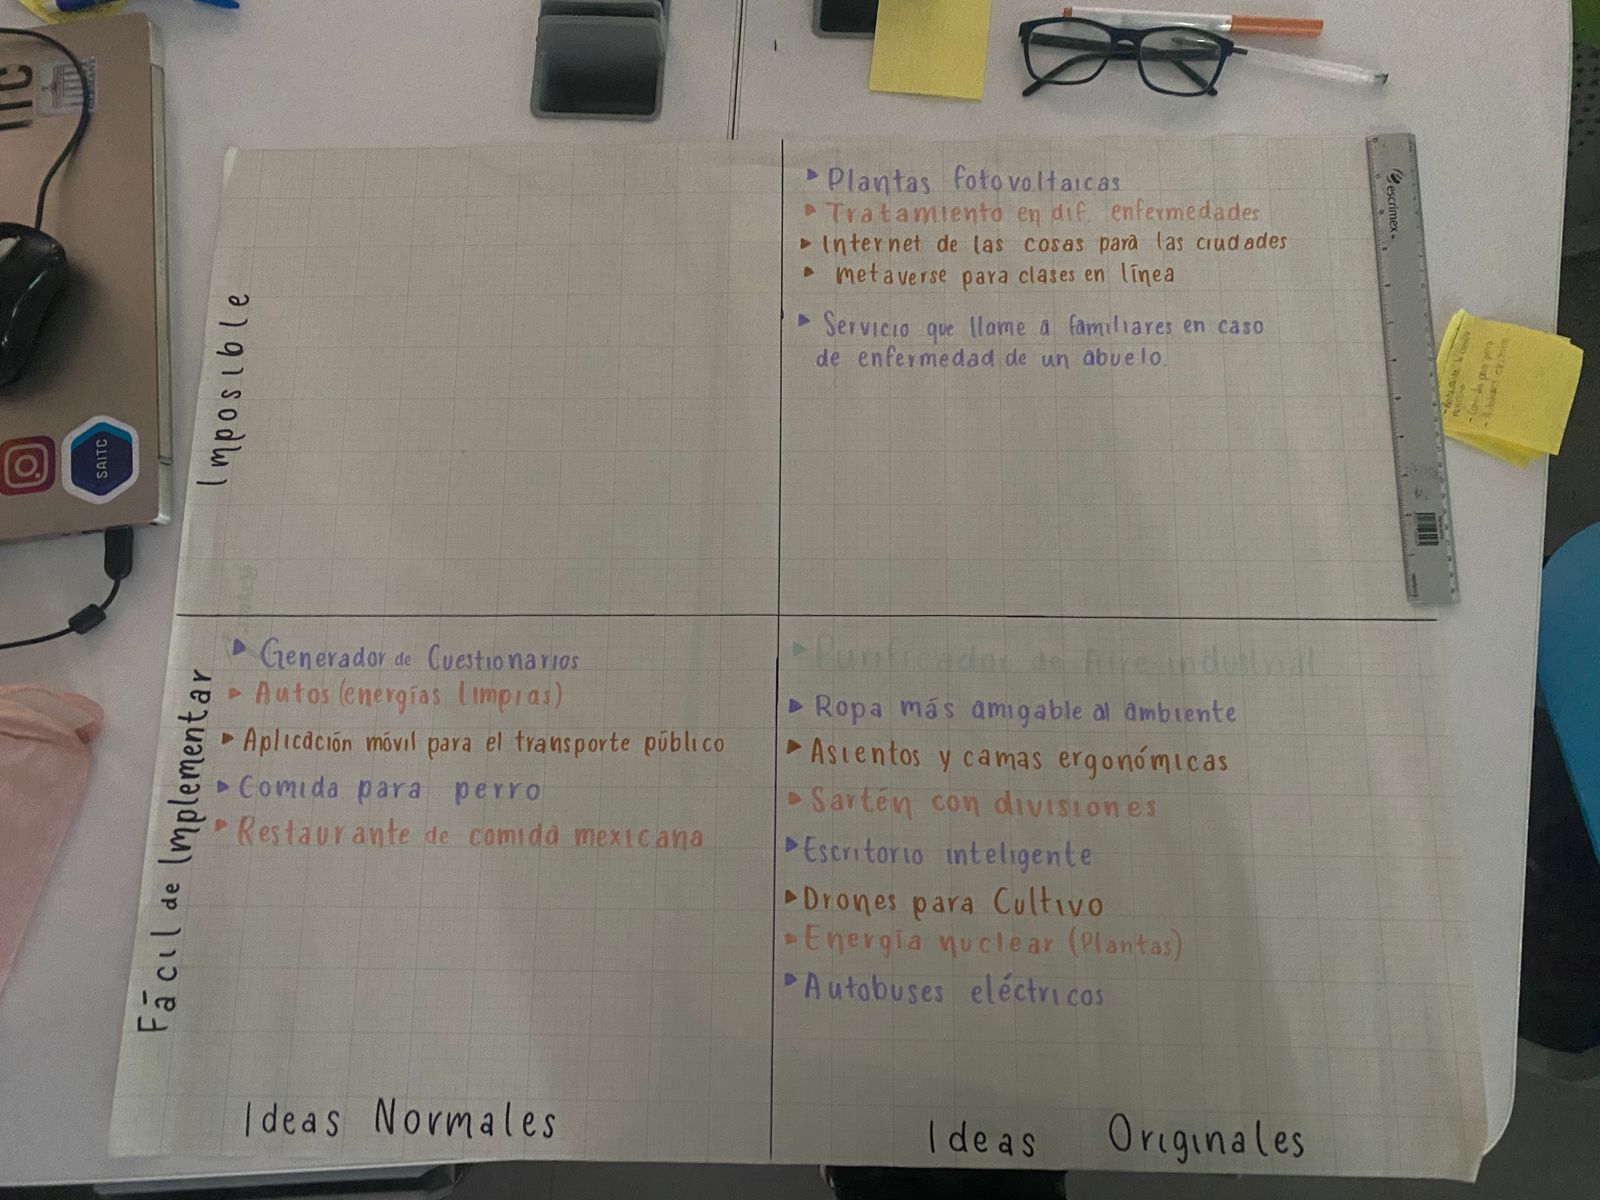 ITC
escrimex
SAITC
Imposible
▸ Plantas fotovoltaicas
▸ Tratamiento en dif. enfermedades
▸ Internet de las cosas para las ciudades
▸ metaverse para clases en línea
▸ Servicio que llame a familiares en caso
de enfermedad de un abuelo.
Fácil de Implementar
▸ Generador de Cuestionarios
▸ Autos (energías limpias)
▸ Aplicación móvil para el transporte público
▸ Comida para perro
▸ Restaurante de comida mexicana
▸ Purificador de Aire industrial
▸ Ropa más amigable al ambiente
▸ Asientos y camas ergonómicas
▸ Sartén con divisiones
▸ Escritorio inteligente
▸ Drones para Cultivo
▸ Energía nuclear (Plantas)
▸ Autobuses eléctricos
Ideas Normales
Ideas Originales